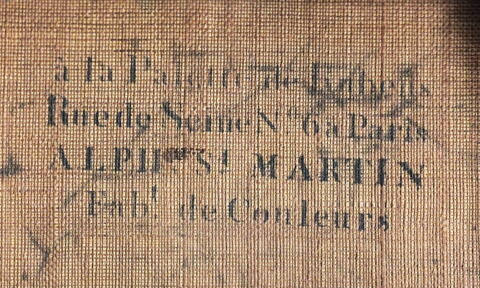 à la Palette de Rubens
Rue de Seine N.° 6 à Paris
ALPH.se St MARTIN
Fab.t de Couleurs